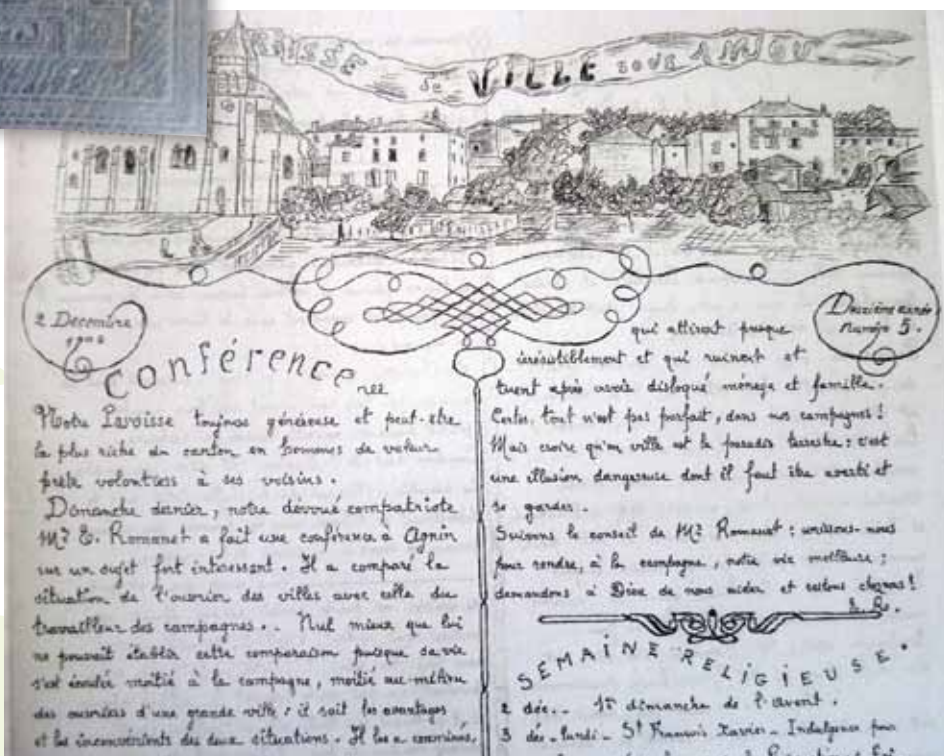 OISSE DE VILLE SOUS ANJOU
2 Décembre
Deuxième année
Numéro 5.
Conférence
Notre Paroisse toujours généreuse et peut-être
la plus riche du canton en hommes de valeur
prête volontiers à ses voisins.
Dimanche dernier, notre dévoué compatriote
Mr E. Romanet a fait une conférence à Agnin
sur un sujet fort intéressant. Il a comparé la
situation de l'ouvrier des villes avec celle du
travailleur des campagnes.. Nul mieux que lui
ne pouvait établir cette comparaison puisque sa vie
s'est écoulée moitié à la campagne, moitié au milieu
des ouvriers d'une grande ville ; il sait les avantages
et les inconvénients des deux situations. Il les a
qui attirent presque
irrésistiblement et qui ruinent et
tuent après avoir disloqué ménage et famille.
Certes, tout n'est pas parfait, dans nos campagnes !
Mais croire qu'en ville est le paradis terrestre : c'est
une illusion dangereuse dont il faut être averti et
se garder.
Suivons le conseil de Mr Romanet : unissons-nous
pour rendre, à la campagne, notre vie meilleure ;
demandons à Dieu de nous aider et restons
SEMAINE RELIGIEUSE.
2 déc.. 1er dimanche de l'avent.
3 déc. lundi. St François Xavier. Indulgence pour